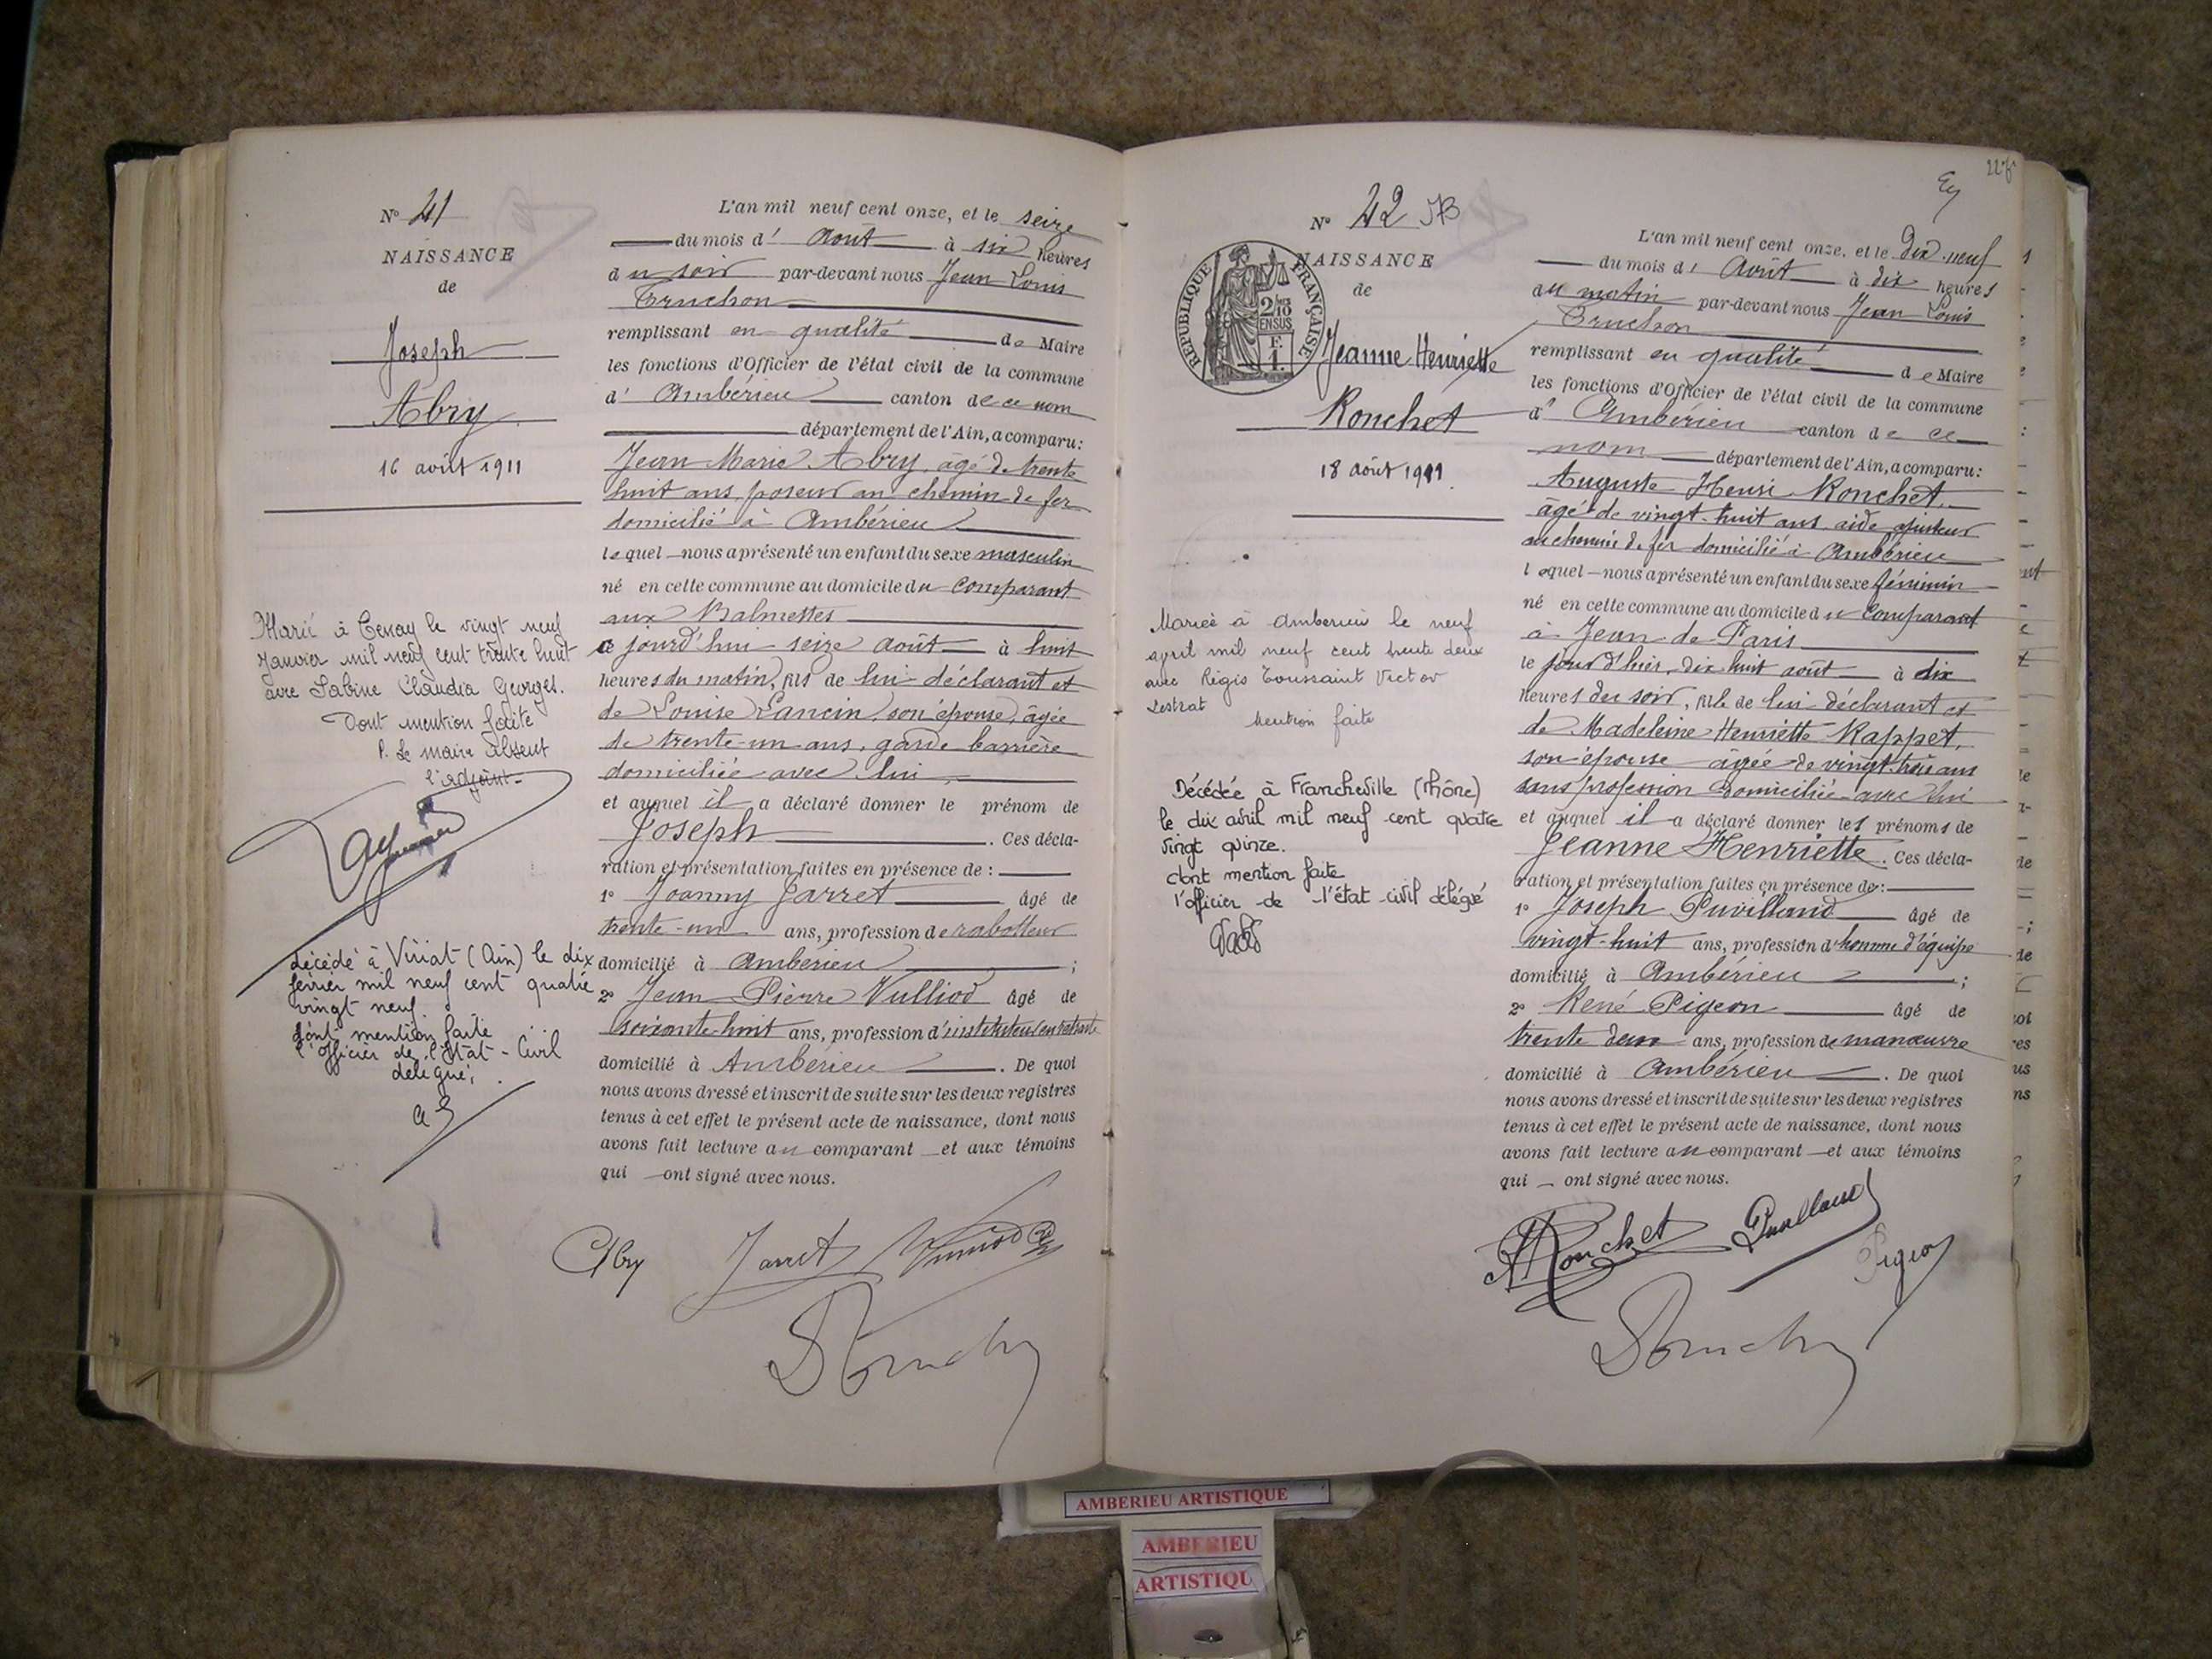 N° 41
NAISSANCE
de
Joseph
Abry
16 août 1911
Marié à Tenay le vingt neuf
Janvier mil neuf cent trente huit
avec Sabine Claudia Georges.
Dont mention faite
P. Le maire absent
l'adjoint
décédé à Viriat (Ain) le dix
février mil neuf cent quatre
vingt neuf.
dont mention faite
l'officier de l'Etat-Civil
délégué,
L'an mil neuf cent onze, et le seize
du mois d' Août à six heures
du soir par-devant nous Jean Louis
Truchon
remplissant en qualité de Maire
les fonctions d'Officier de l'état civil de la commune
d' Ambérieu canton de ce nom
département de l'Ain, a comparu:
Jean Marie Abry, âgé de trente
huit ans, poseur au chemin de fer
domicilié à Ambérieu
lequel nous a présenté un enfant du sexe masculin
né en cette commune au domicile du comparant
aux Balmettes
ce jourd'hui seize août à huit
heures du matin, fils de lui déclarant et
de Louise Lancin, son épouse, âgée
de trente-un ans, garde barrière
domiciliée avec lui
et auquel il a déclaré donner le prénom de
Joseph. Ces décla-
ration et présentation faites en présence de :
1° Joanny Jarret âgé de
trente-un ans, profession de raboteur
domicilié à Ambérieu ;
2° Jean Pierre Vulliod âgé de
soixante-huit ans, profession d'instituteur en retraite
domicilié à Ambérieu. De quoi
nous avons dressé et inscrit de suite sur les deux registres
tenus à cet effet le présent acte de naissance, dont nous
avons fait lecture au comparant et aux témoins
qui ont signé avec nous.
Abry Jarret Vulliod
Truchon
N° 42
NAISSANCE
de
REPUBLIQUE FRANÇAISE
2/10
EN SUS
F.
1.
Jeanne Henriette
Ronchet
18 août 1911
Mariée à Ambérieu le neuf
avril mil neuf cent trente deux
avec Régis Toussaint Victor
Lestrat
Mention faite
Décédée à Francheville (rhône)
le dix avril mil neuf cent quatre
vingt quinze.
dont mention faite
l'officier de l'état civil délégué
L'an mil neuf cent onze, et le dix-neuf
du mois d' Août à dix heures
du matin par-devant nous Jean Louis
Truchon
remplissant en qualité de Maire
les fonctions d'Officier de l'état civil de la commune
d' Ambérieu canton de ce
nom département de l'Ain, a comparu:
Auguste Henri Ronchet,
âgé de vingt-huit ans, aide ajusteur
au chemin de fer domicilié à Ambérieu
lequel nous a présenté un enfant du sexe féminin
né en cette commune au domicile du comparant
à Jean de Paris
le jour d'hier, dix huit août à dix
heures du soir, fille de lui déclarant et
de Madeleine Henriette Rappet,
son épouse âgée de vingt-trois ans
sans profession domiciliée avec lui
et auquel il a déclaré donner les prénoms de
Jeanne Henriette. Ces décla-
ration et présentation faites en présence de :
1° Joseph Puvilland âgé de
vingt-huit ans, profession d'homme d'équipe
domicilié à Ambérieu ;
2° René Pigeon âgé de
trente deux ans, profession de manœuvre
domicilié à Ambérieu. De quoi
nous avons dressé et inscrit de suite sur les deux registres
tenus à cet effet le présent acte de naissance, dont nous
avons fait lecture au comparant et aux témoins
qui ont signé avec nous.
Ronchet Puvilland
Pigeon
Truchon
AMBERIEU ARTISTIQUE
AMBERIEU
ARTISTIQU